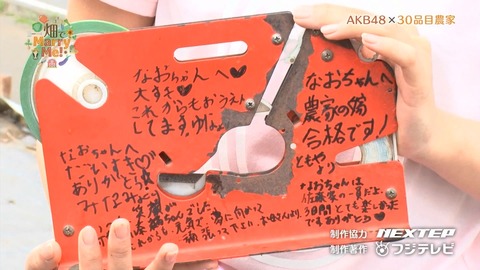 畑で
Marry
Me!
AKB48×30品目農家
なおちゃんへ♥
大すき♥
これからもおうえん
してます。
なおちゃんへ
農家の嫁
合格です!
ともや
より
なおちゃんへ
だいすき♡
ありがとう!
みなみ
なおちゃんは
佐藤家の一員だよ。
3日間とても楽しか
ですありがとう
でした
これからも、元気で、
頑張って下さい
制作協力 NEXTEP
制作著作 フジテレビ